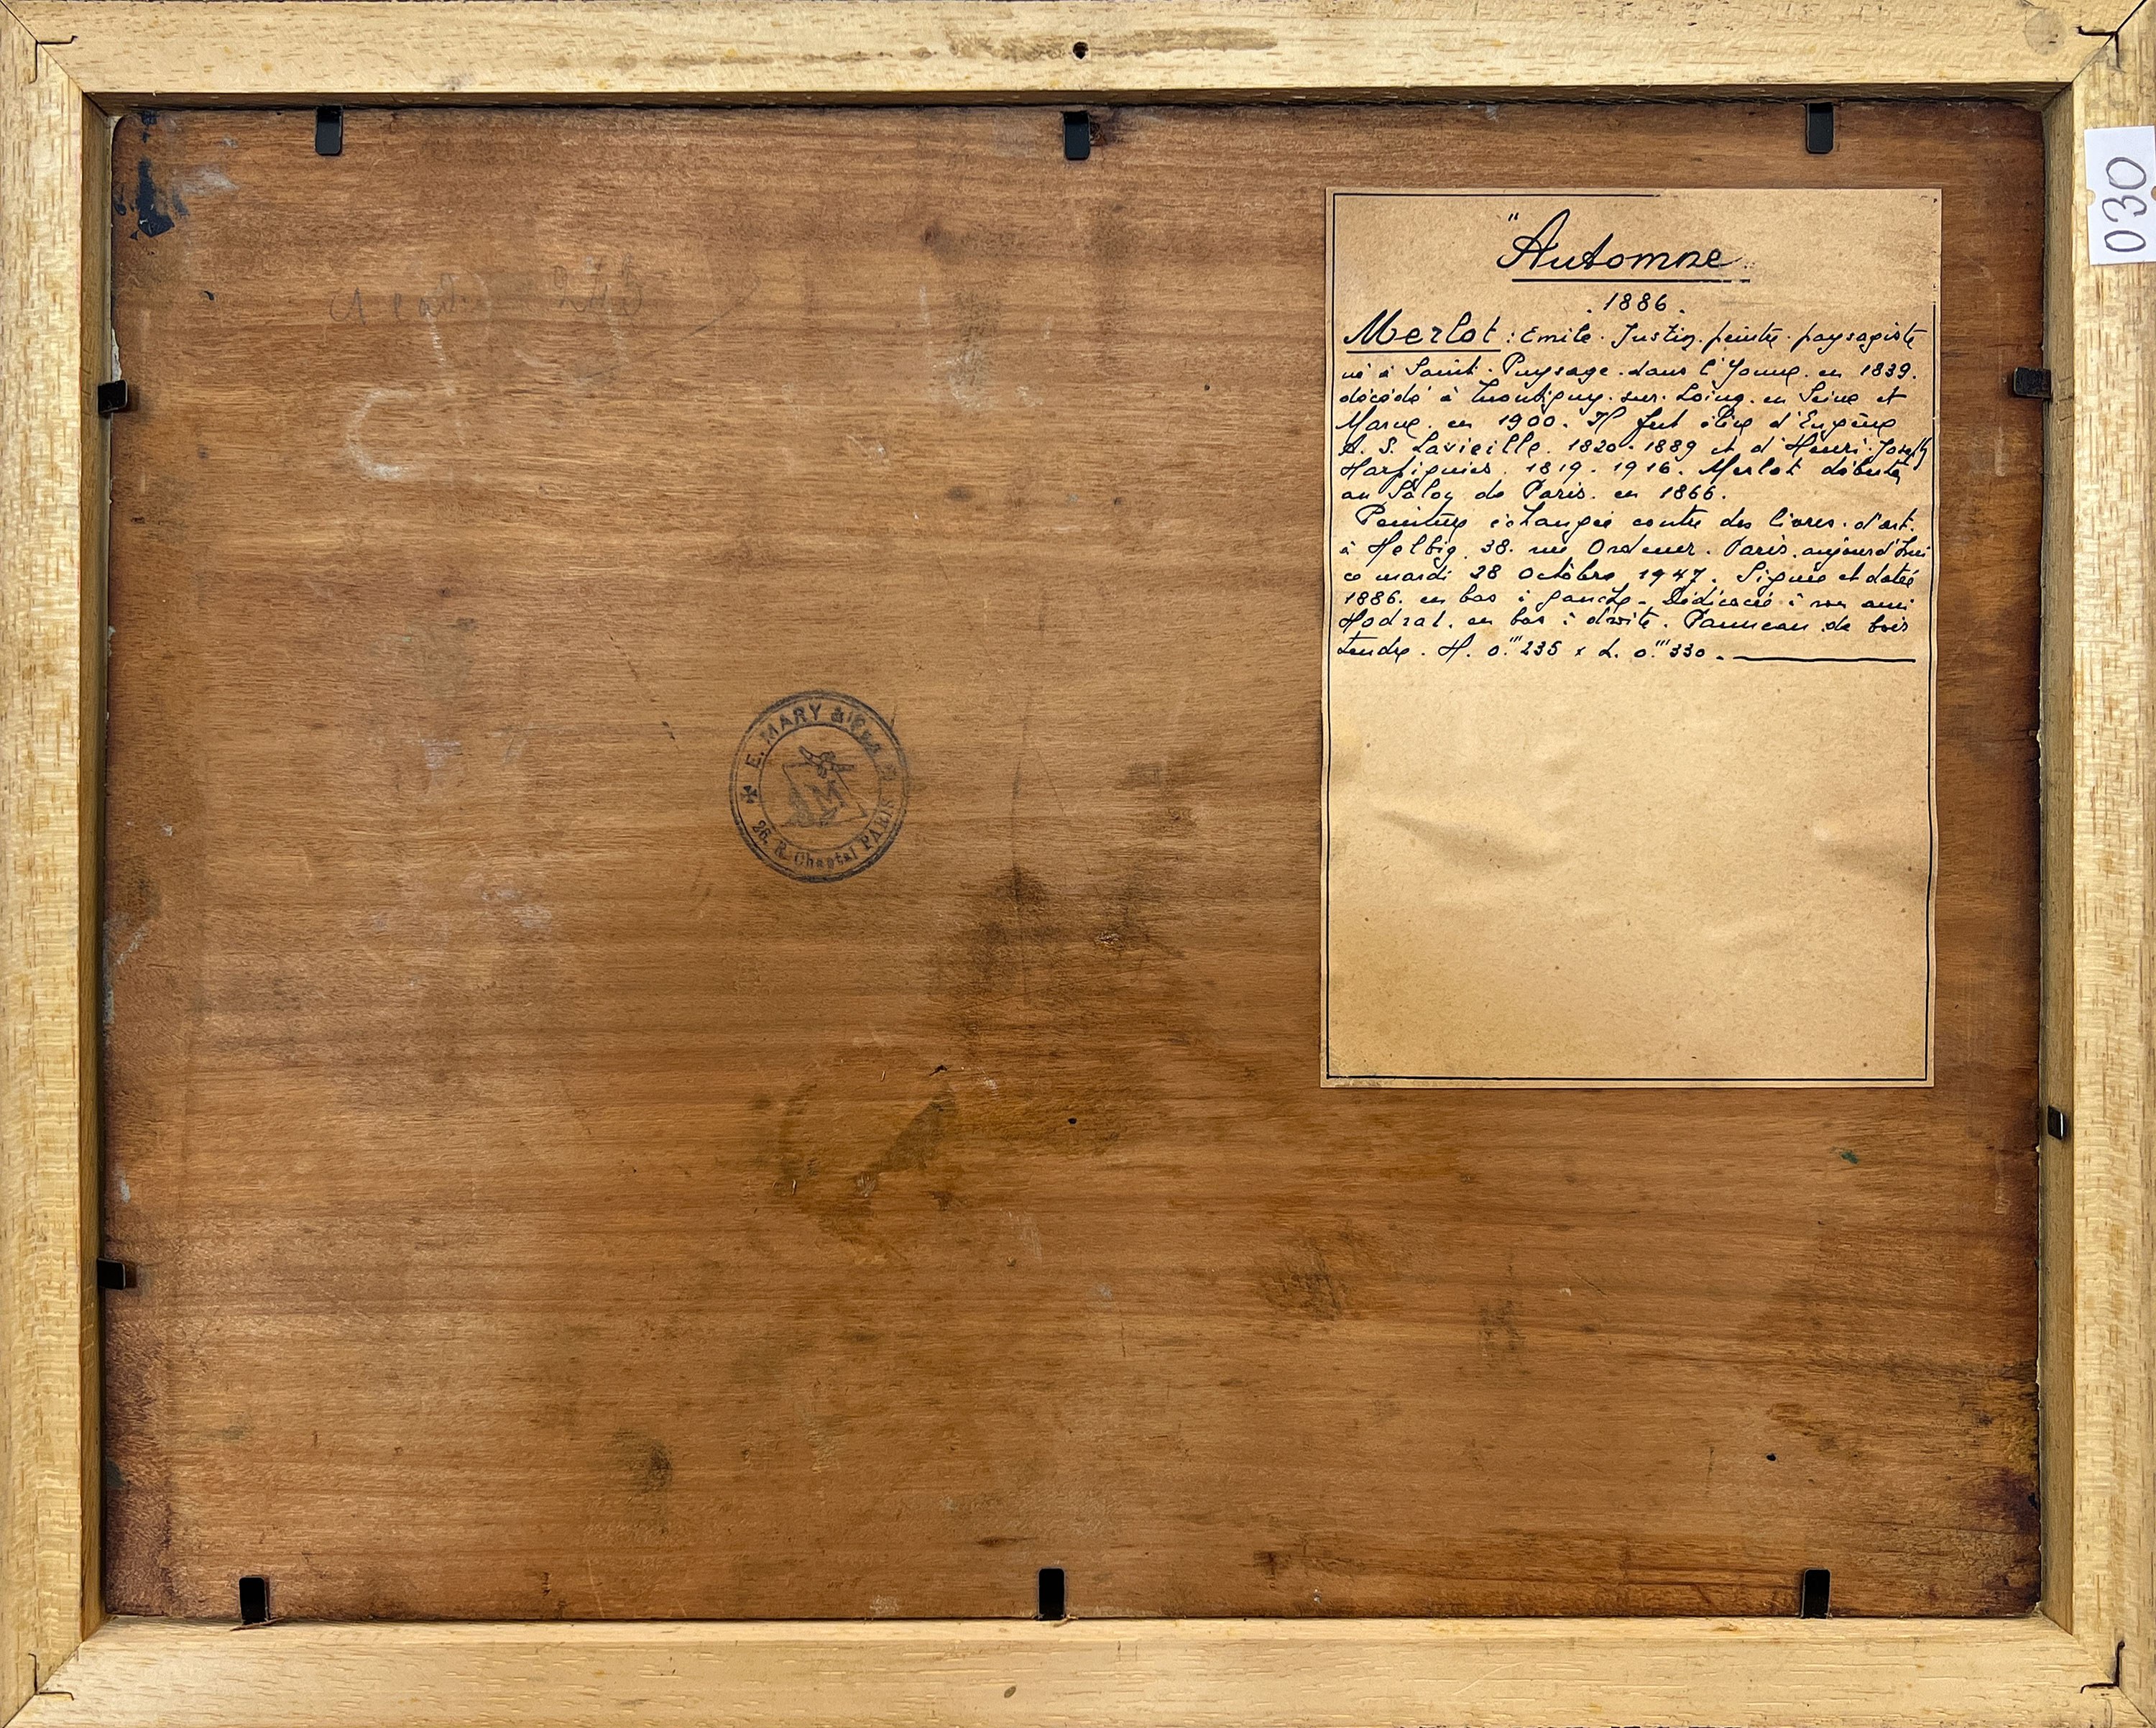 "Automne
. 1886 .
Merlot : Emile. Justin. peintre. paysagiste
né à Saint. Puysage. dans l'Yonne. en 1839.
décédé à Montigny. sur. Loing. en Seine et
Marne. en 1900. Il fut élève d'Eugène
A. S. Lavieille. 1820. 1889 et d'Henri. Joseph
Harpignies. 1819. 1916. Merlot débuta
au Salon de Paris. en 1866.
Peinture échangée contre des livres. d'art.
à Helbig. 38. rue Ordener. Paris. aujourd'hui
ce mardi 28 Octobre 1947. Signée et datée
1886. en bas à gauche - Dédicacée à son ami
Hodzal. en bas à droite. Panneau de bois
tendre. H. 0.m 235 x L. 0.m 330 .
030
E. MARY &
26, R. Chaptal PARIS